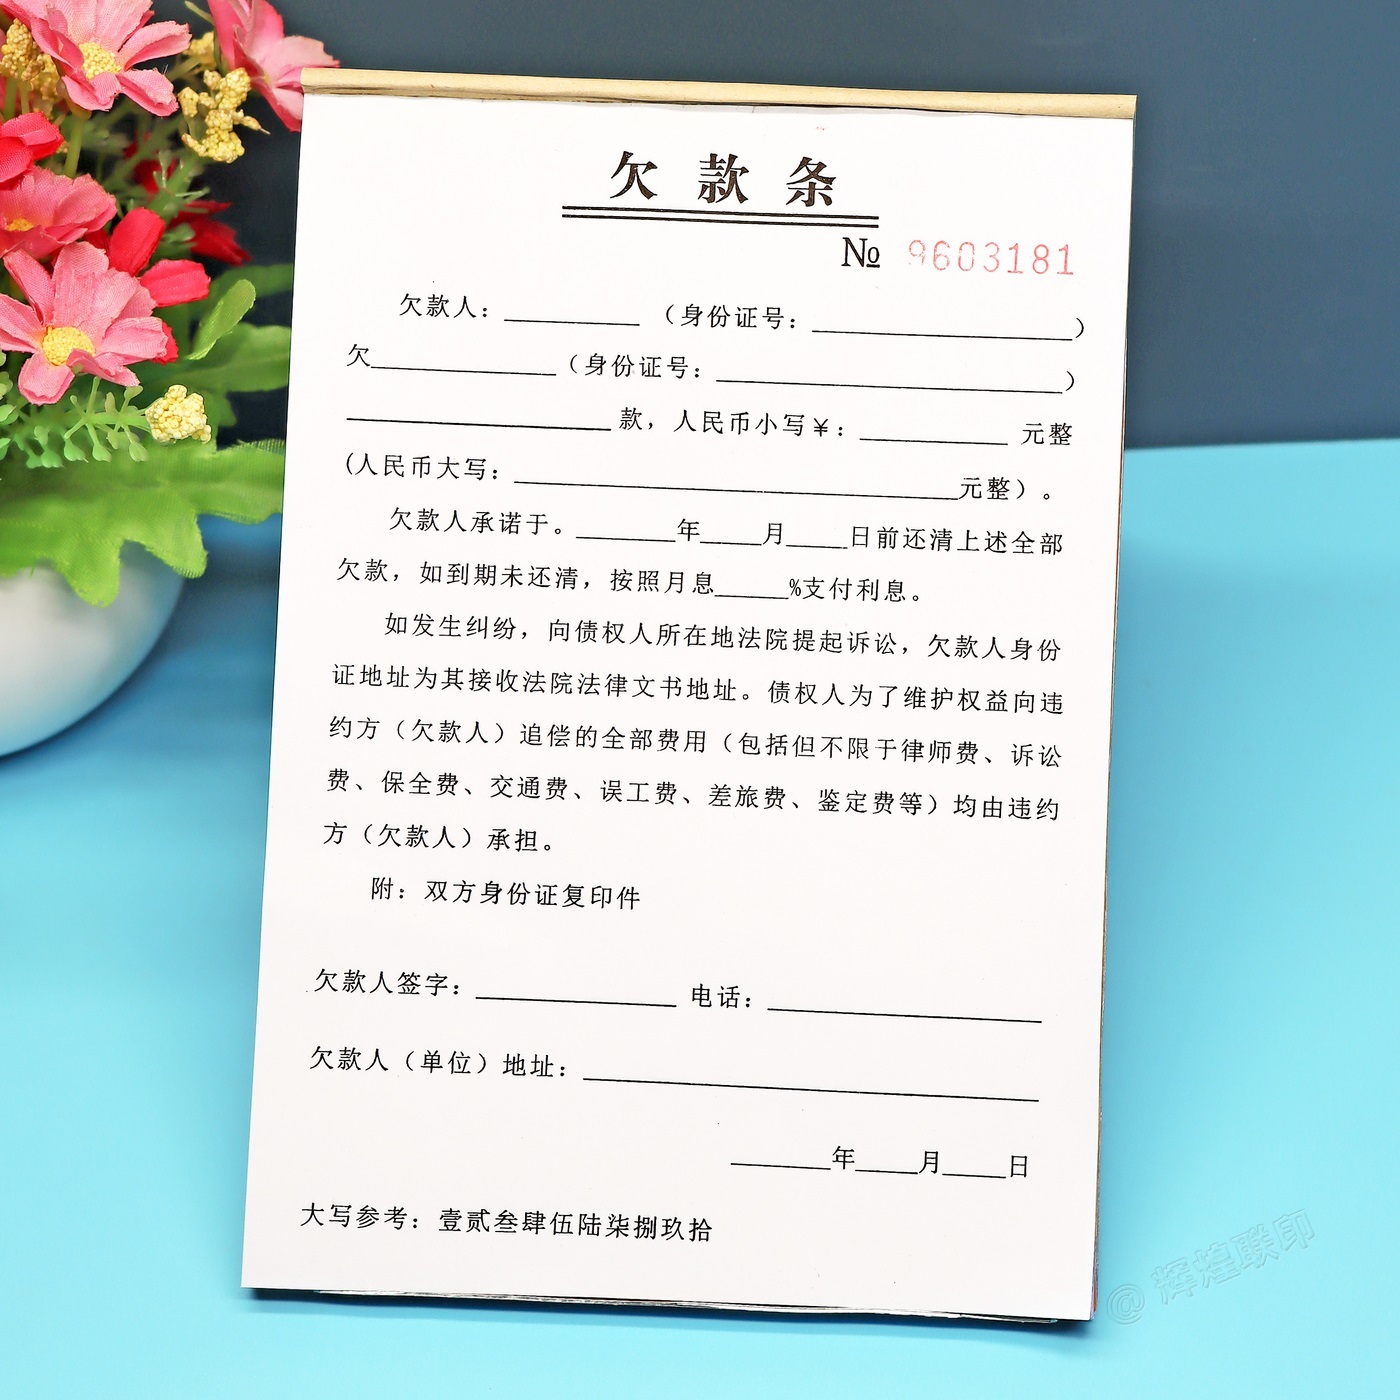 欠款条
№ 9603181
欠款人：__________（身份证号：____________________）
欠______________（身份证号：__________________________）
____________________款，人民币小写￥：___________元整
(人民币大写：__________________________________元整）。
欠款人承诺于。________年_____月_____日前还清上述全部
欠款，如到期未还清，按照月息______%支付利息。
如发生纠纷，向债权人所在地法院提起诉讼，欠款人身份
证地址为其接收法院法律文书地址。债权人为了维护权益向违
约方（欠款人）追偿的全部费用（包括但不限于律师费、诉讼
费、保全费、交通费、误工费、差旅费、鉴定费等）均由违约
方（欠款人）承担。
附：双方身份证复印件
欠款人签字：_______________ 电话：_____________________
欠款人（单位）地址：___________________________________
________年_____月_____日
大写参考：壹贰叁肆伍陆柒捌玖拾
@辉煌联印